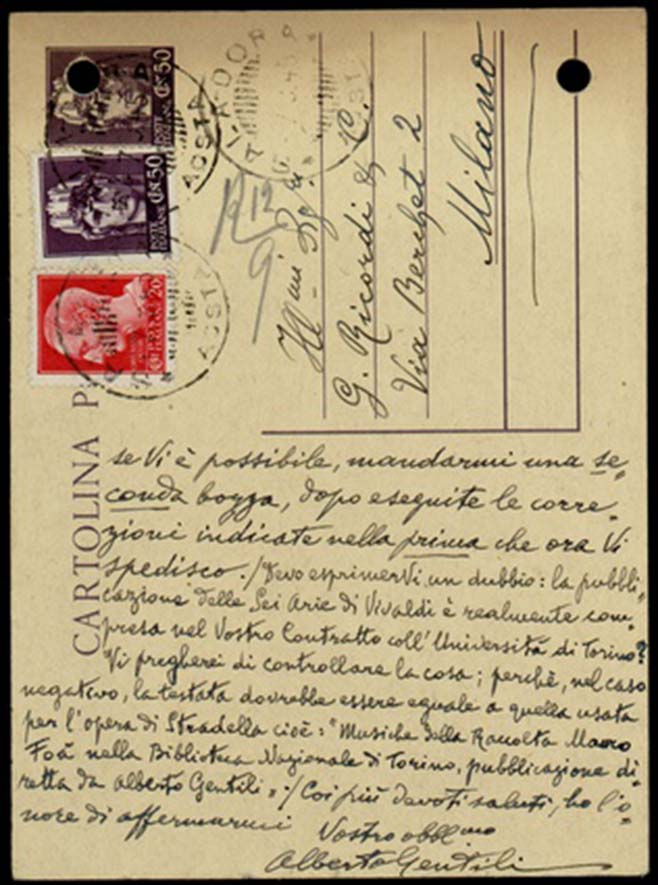 Ill.mi Sig.ri
G. Ricordi & C.
Via Berchet 2
Milano
12
9
AOSTA
AOSTA
Ct. 50
POSTE ITALIANE
Ct. 50
CARTOLINA P
se Vi è possibile, mandarmi una se-
conda bozza, dopo eseguite le corre-
zioni indicate nella prima che ora Vi
spedisco./Devo esprimerVi un dubbio: la pubbli-
cazione delle Sei Arie di Vivaldi è realmente com-
presa nel Vostro Contratto coll'Università di Torino?
Vi pregherei di controllare la cosa; perchè, nel caso
negativo, la testata dovrebbe essere eguale a quella usata
per l'opera di Stradella cioè: "Musiche della Raccolta Mauro
Foà nella Biblioteca Nazionale di Torino, pubblicazione di-
retta da Alberto Gentili"./Coi più devoti saluti, ho l'o-
nore di affermarmi Vostro obbl.mo
Alberto Gentili